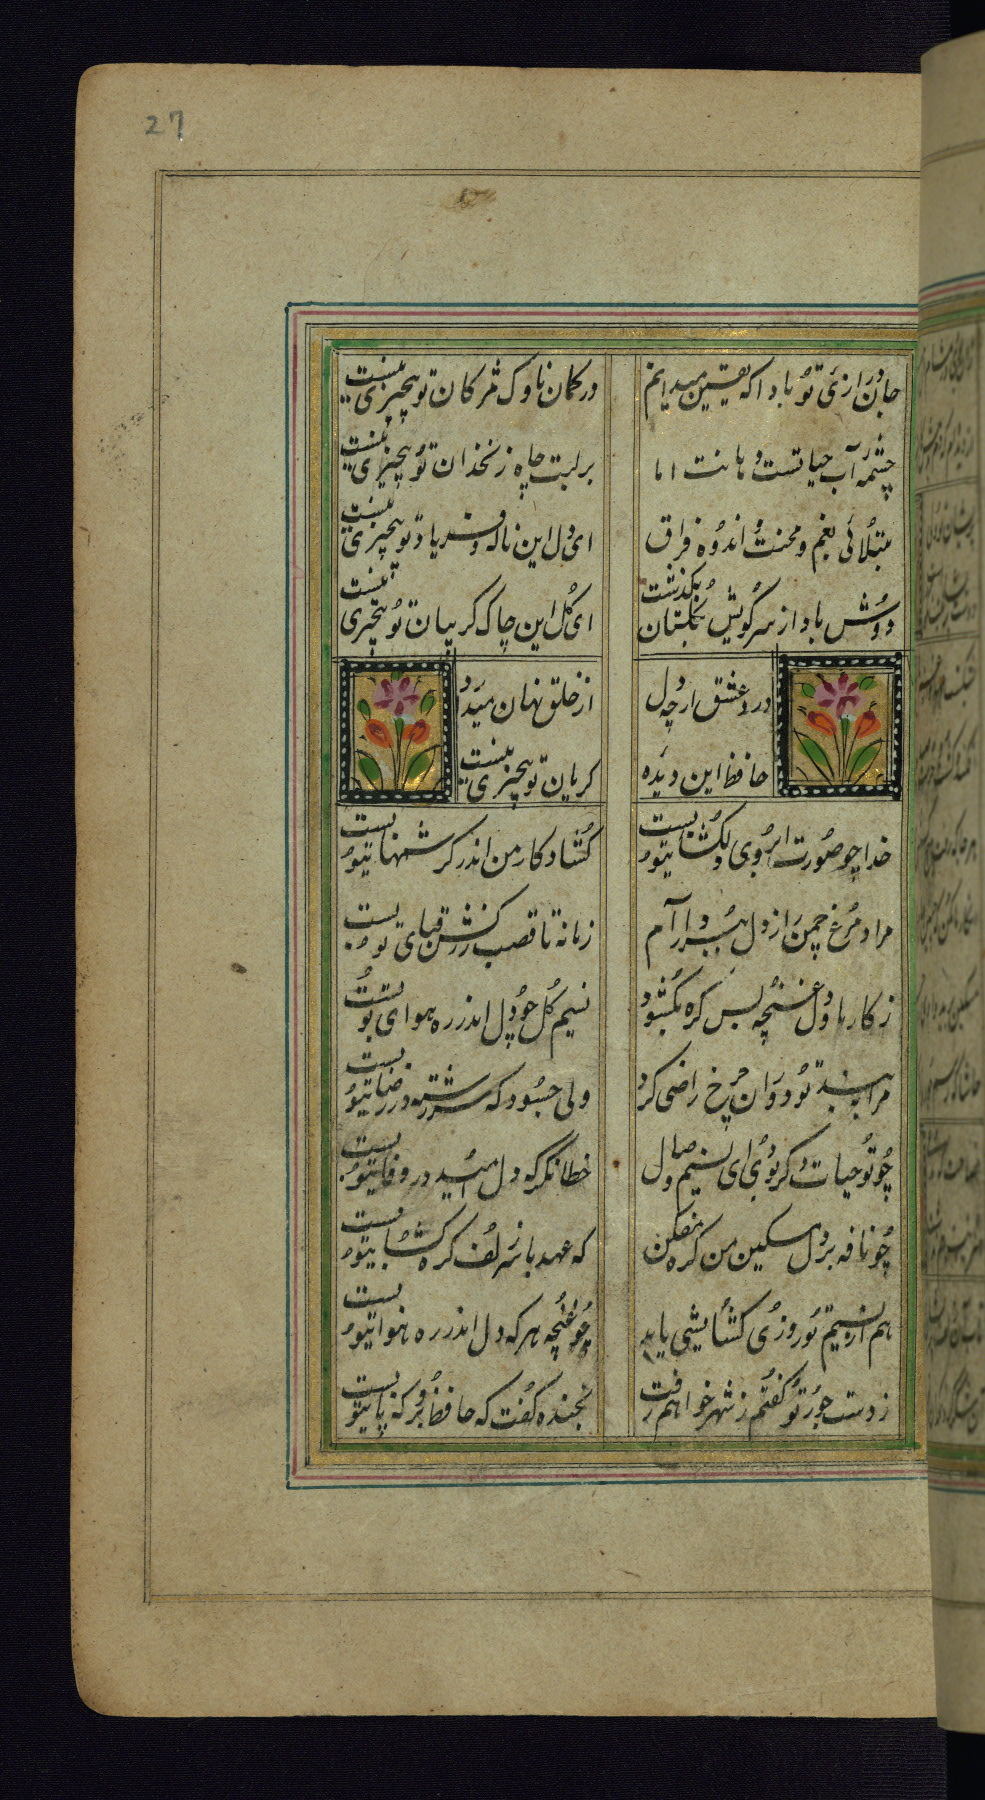 27
جان درازی تو بادا که یقین میدانم
در کمان ناوک مژکان تو بیچیزی نیست
چشمه آب حیاتست دهانت اما
بر لبت چاه زنخدان تو بیچیزی نیست
مبتلائی بغم و محنت و اندوه فراق
ای دل این ناله و فریاد تو بیچیزی نیست
دوش باد از سر کویش بکلستان بکذشت
ای کل این چاک کریبان تو بیچیزی نیست
درد عشق ارچه دل
از خلق نهان میدارد
حافظ این دیده
کریان تو بیچیزی نیست
خدا چو صورت ابروی دلکشای تو بست
کشاد کار من اندر کرشمهای تو بست
مرا و مرغ چمن را ز دل ببرد آرام
زمانه تا قصب زرکش قبای تو بست
ز کار ما و دل غنچه بس کره بکشود
نسیم کل چو دل اندر ره هوای تو بست
مرا به بند تو دوران چرخ راضی کرد
ولی چسود که سررشته در رضای تو بست
چو تو حیات دکر بودی ای نسیم وصال
خطا نکر که دل امید در وفای تو بست
چو نافه بر دل مسکین من کره مفکن
که عهد با سر زلف کره کشای تو بست
هم از نسیم تو روزی کشایشی یابد
چو غنچه هر که دل اندر ره هوای تو بست
ز دست جور تو کفتم ز شهر خواهم رفت
بخنده کفت که حافظ برو که پای تو بست